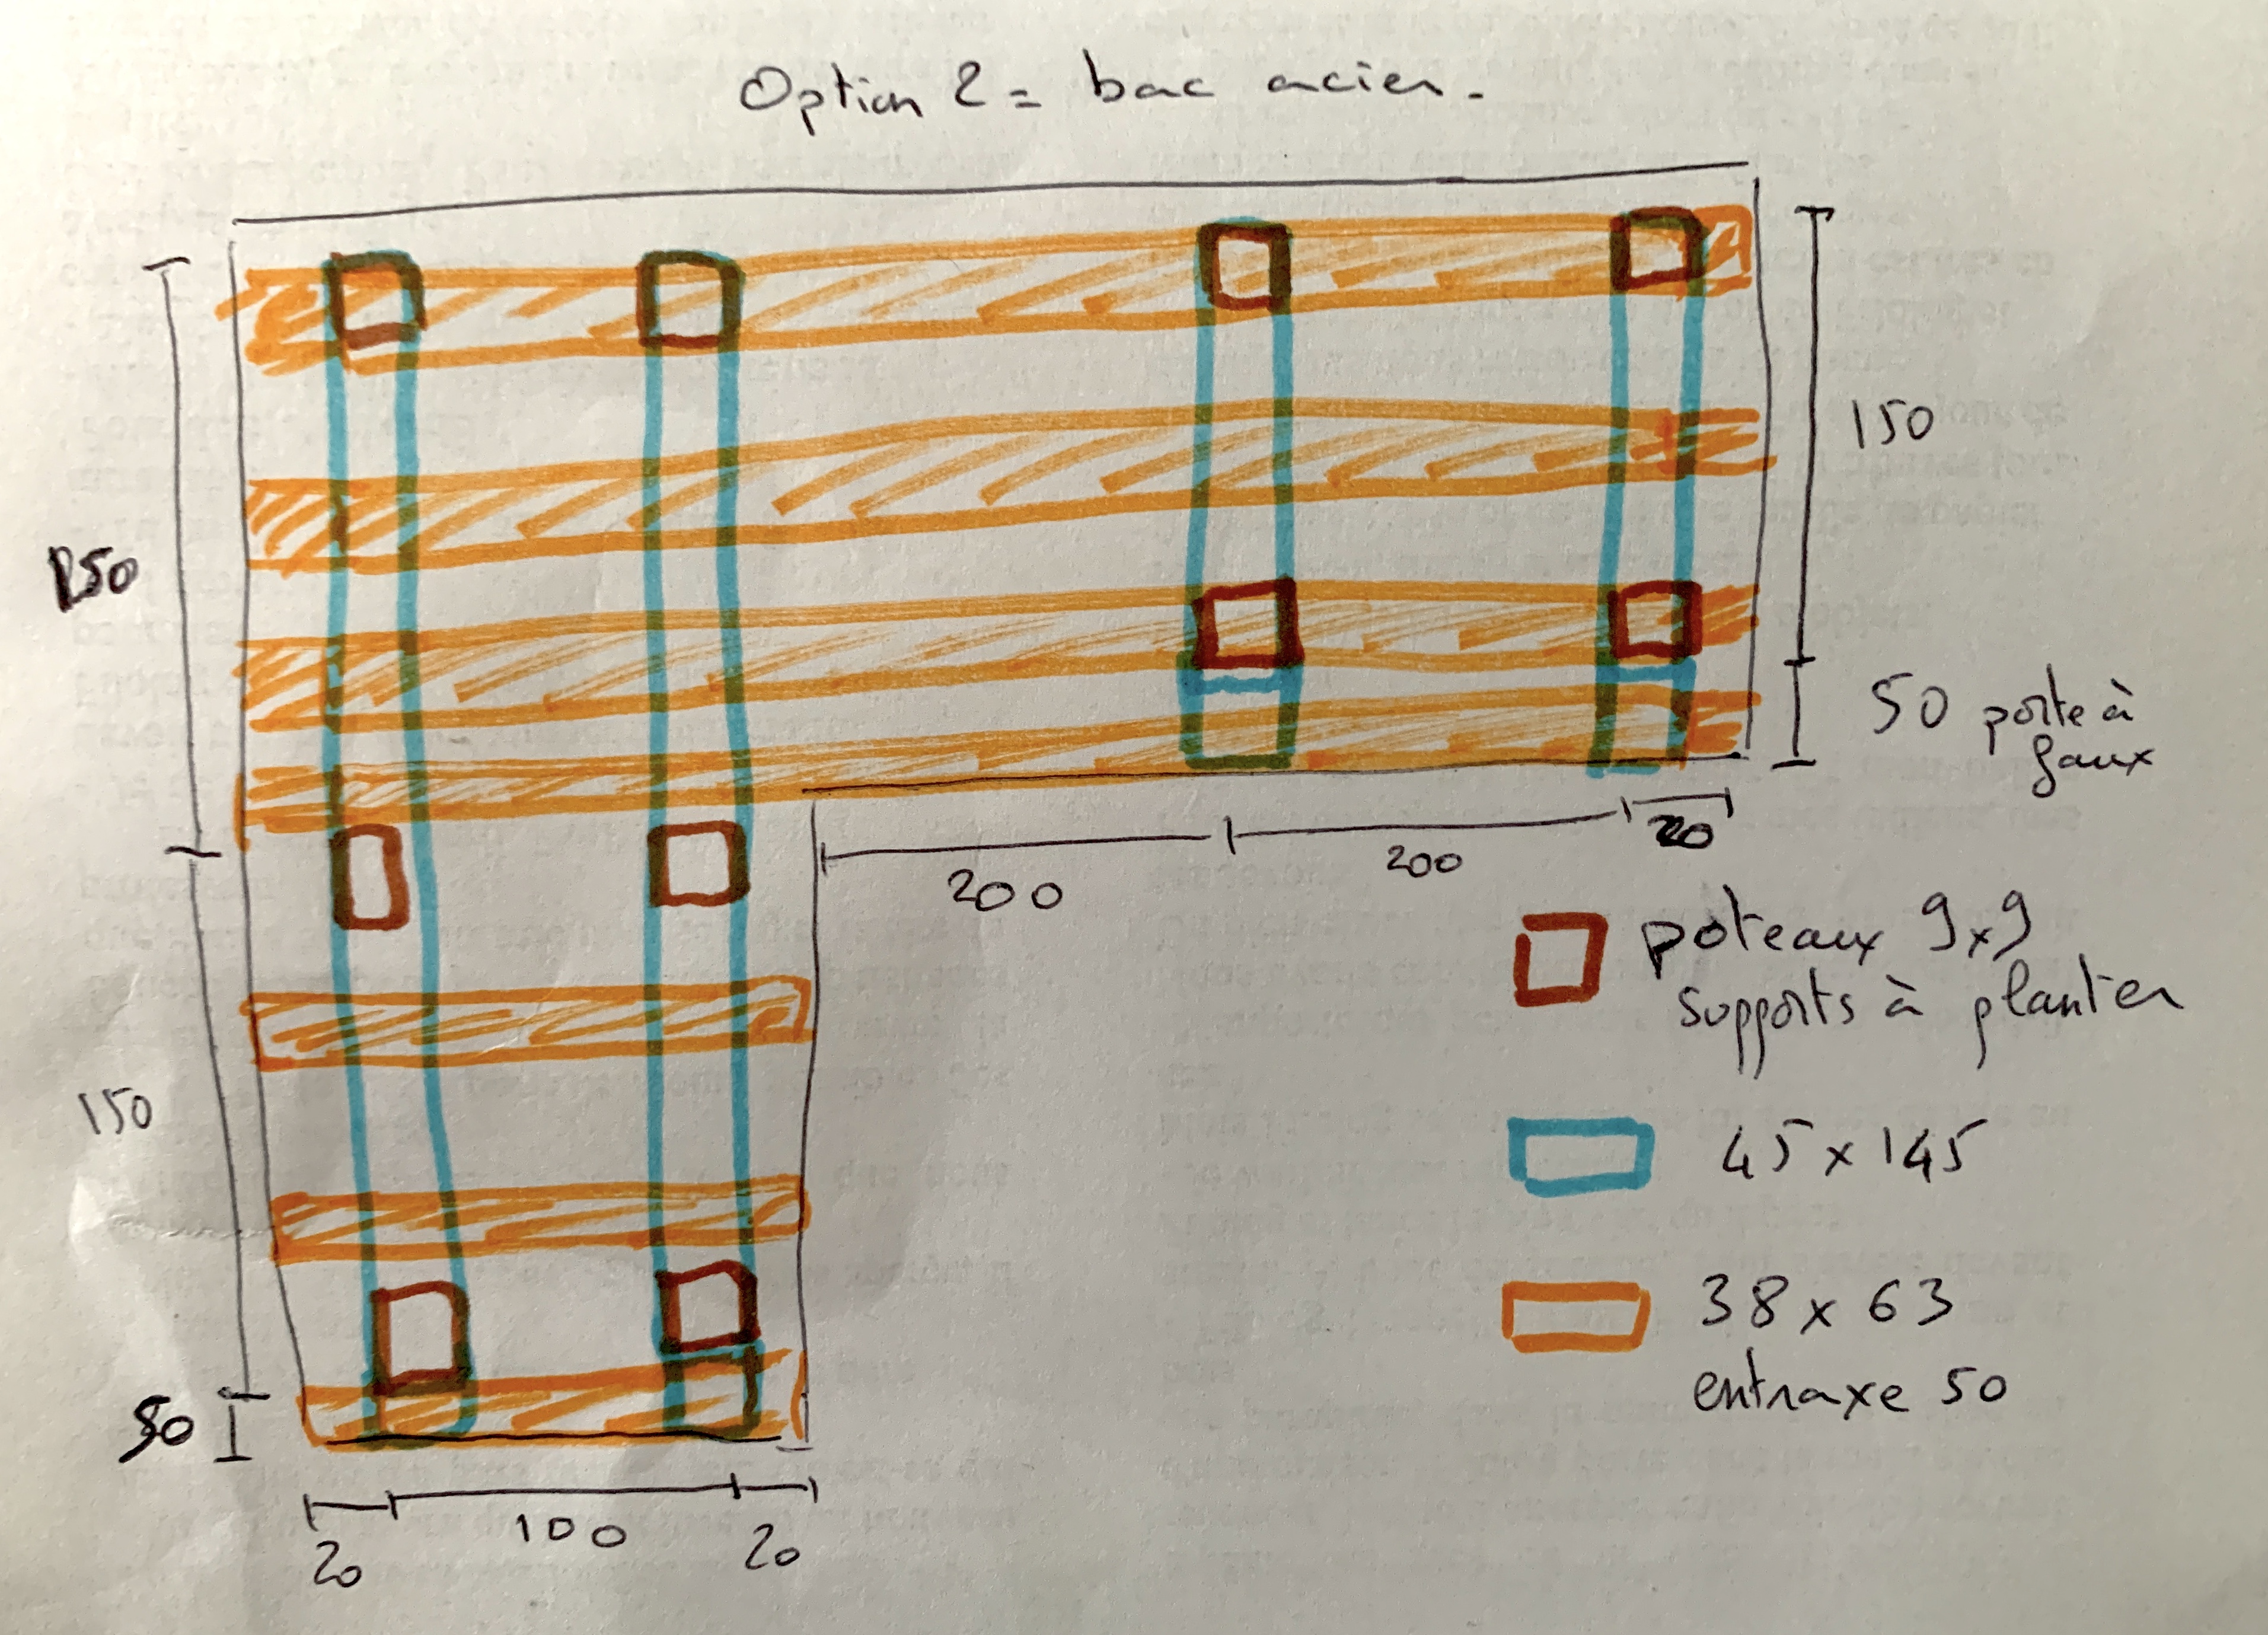 Option 2 = bac acier.
150
150
50 porte à
faux
20
200
200
poteaux 9x9
supports à planter
150
45 x 145
38 x 63
entraxe 50
50
20
100
20